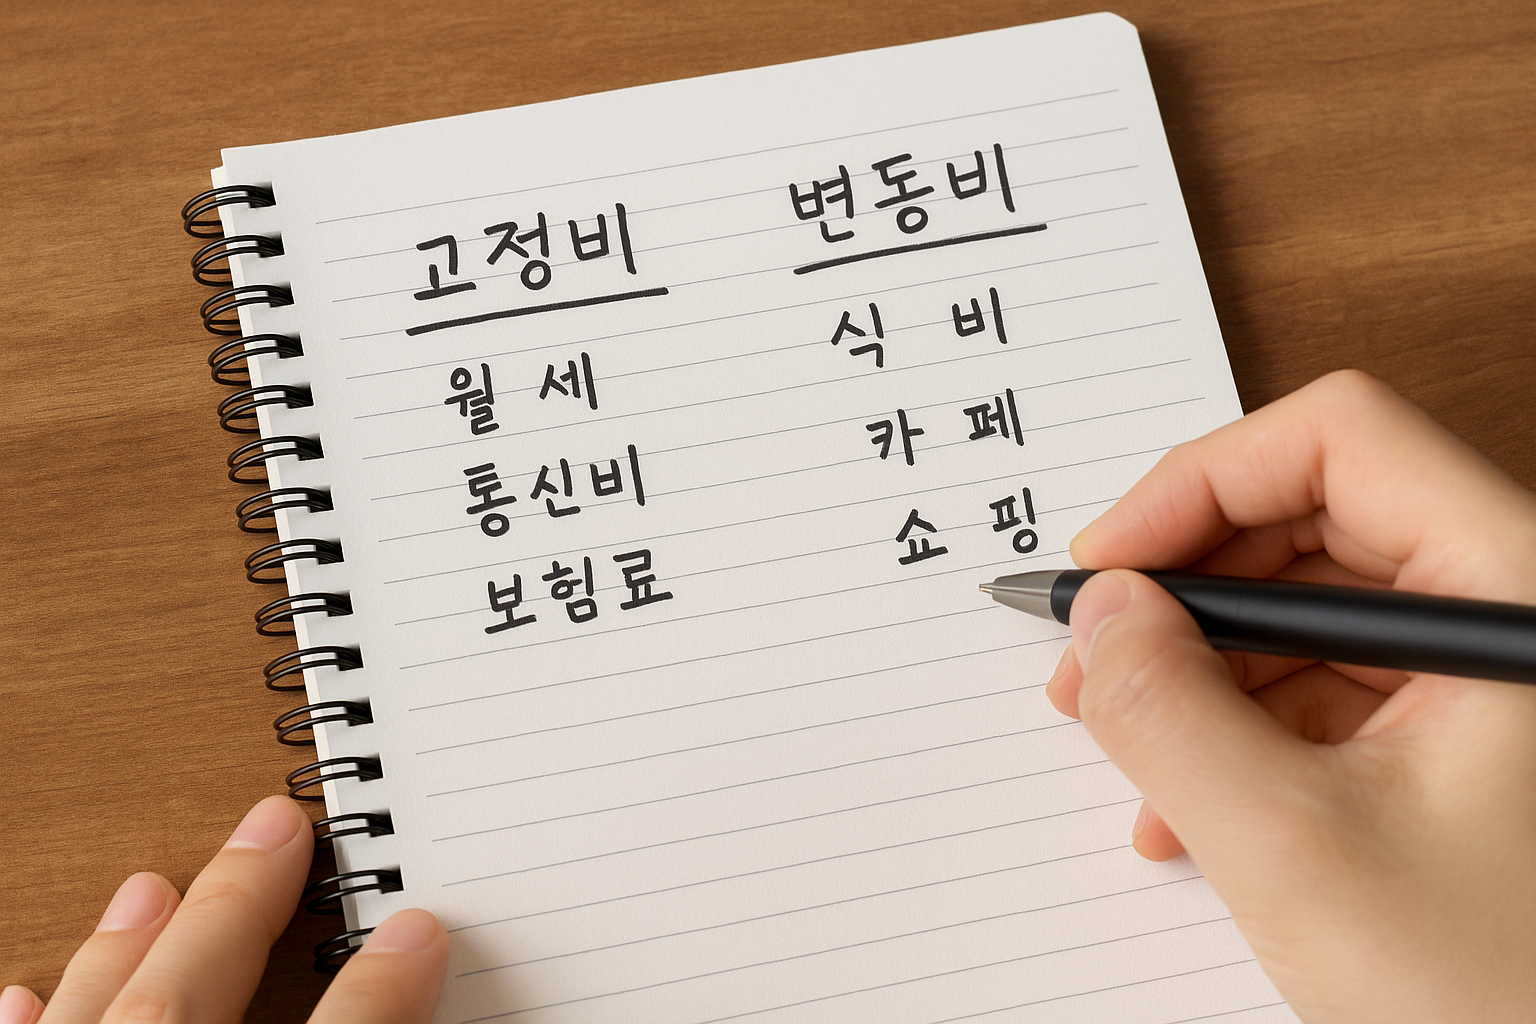 고정비
월세
통신비
보험료
변동비
식비
카페
쇼핑